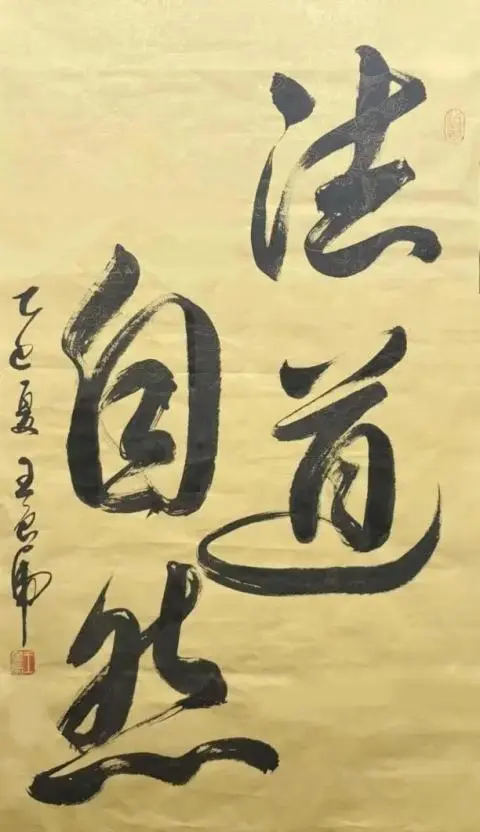 法道
自然
乙巳夏 王良虎